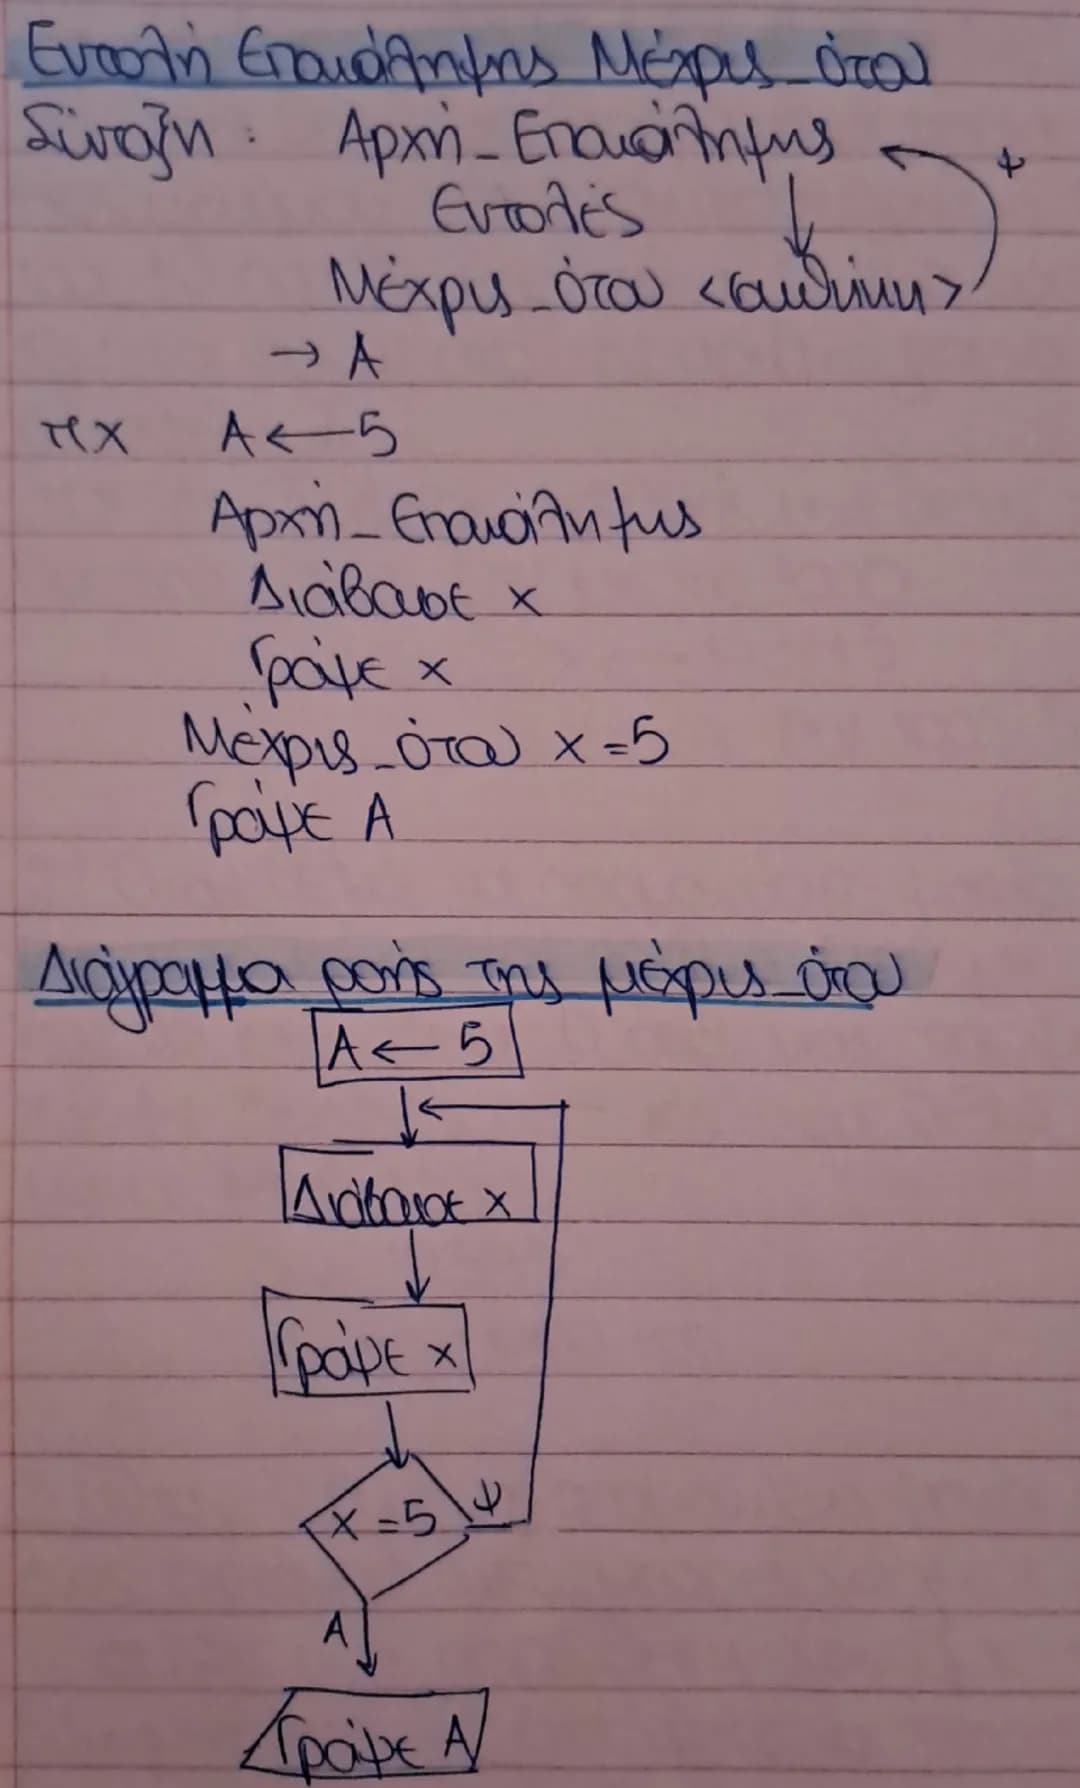 Εντολή Επανάληψης Μέχρις_ότου
Σύνταξη : Αρχή_Επανάληψης Ψ
Εντολές
Μέχρις_ότου <συνθήκη>
→ Α
πχ Α ← 5
Αρχή_Επανάληψης
Διάβασε x
Γράψε x
Μέχρις_ότου x = 5
Γράψε Α
Διάγραμμα ροής της μέχρις_ότου
Α ← 5
Διάβασε x
Γράψε x
x = 5 Ψ
Α
Γράψε Α